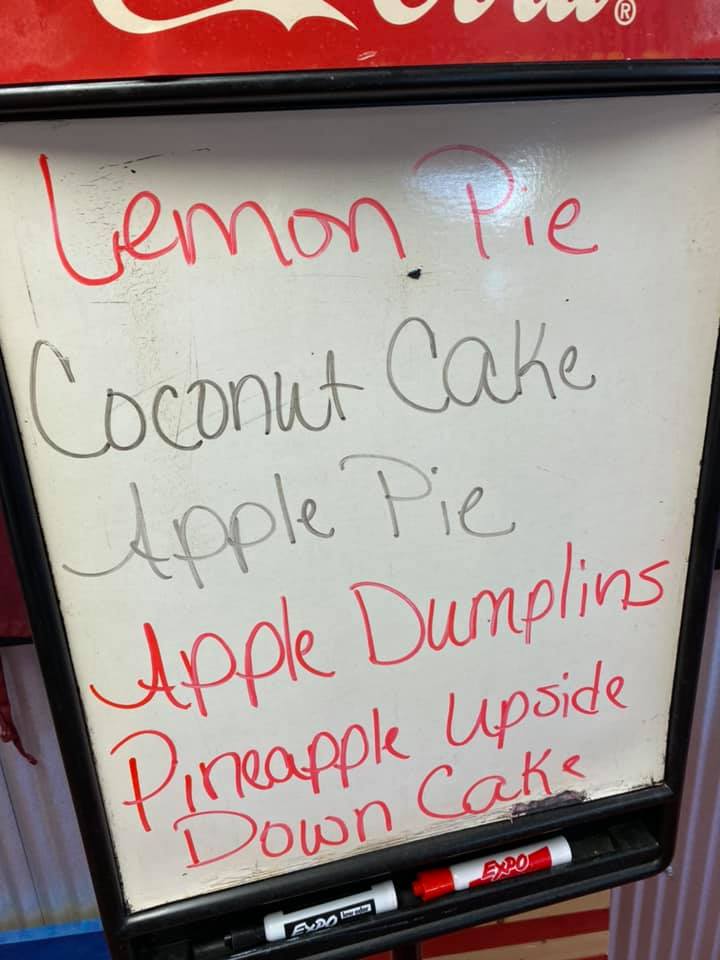 Cola®
Lemon Pie
Coconut Cake
Apple Pie
Apple Dumplins
Pineapple Upside
Down Cake
EXPO
EXPO low odor